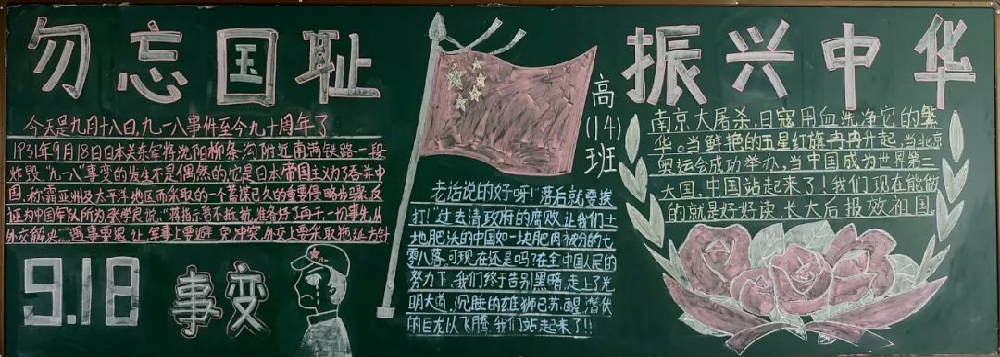 勿忘国耻
今天是九月十八日,九一八事件至今九十周年了
1931年9月18日日本关东军将沈阳柳条沟附近南满铁路一段
炸毁。"九一八"事变的发生不是偶然的,它是日本帝国主义为了吞并中
国,称霸亚洲及太平洋地区而采取的一个蓄谋已久的重要侵略步骤。反
证为中国军队所为
张学良说:"蒋指示暂不抵抗,准备好了再干,一切事先从
外交解决
遇事要退让,军事上要避免冲突,外交上要采取拖延方针
9.18
事变
高
(14)
班
老话说的好呀!落后就要挨
打!过去清政府的腐败,让我们土
地肥沃的中国如一块肥肉被分的七
零八落,可现在还是吗?在全中国人民的
努力下,我们终于告别黑暗,走上了光
明大道,沉睡的雄狮已苏醒,潜伏
的巨龙以飞腾,我们站起来了!!
振兴中华
南京大屠杀,日寇用血洗净它的繁
华。当鲜艳的五星红旗冉冉升起,当北京
奥运会成功举办,当中国成为世界第二
大国,中国站起来了!我们现在能做
的就是好好读,长大后报效祖国